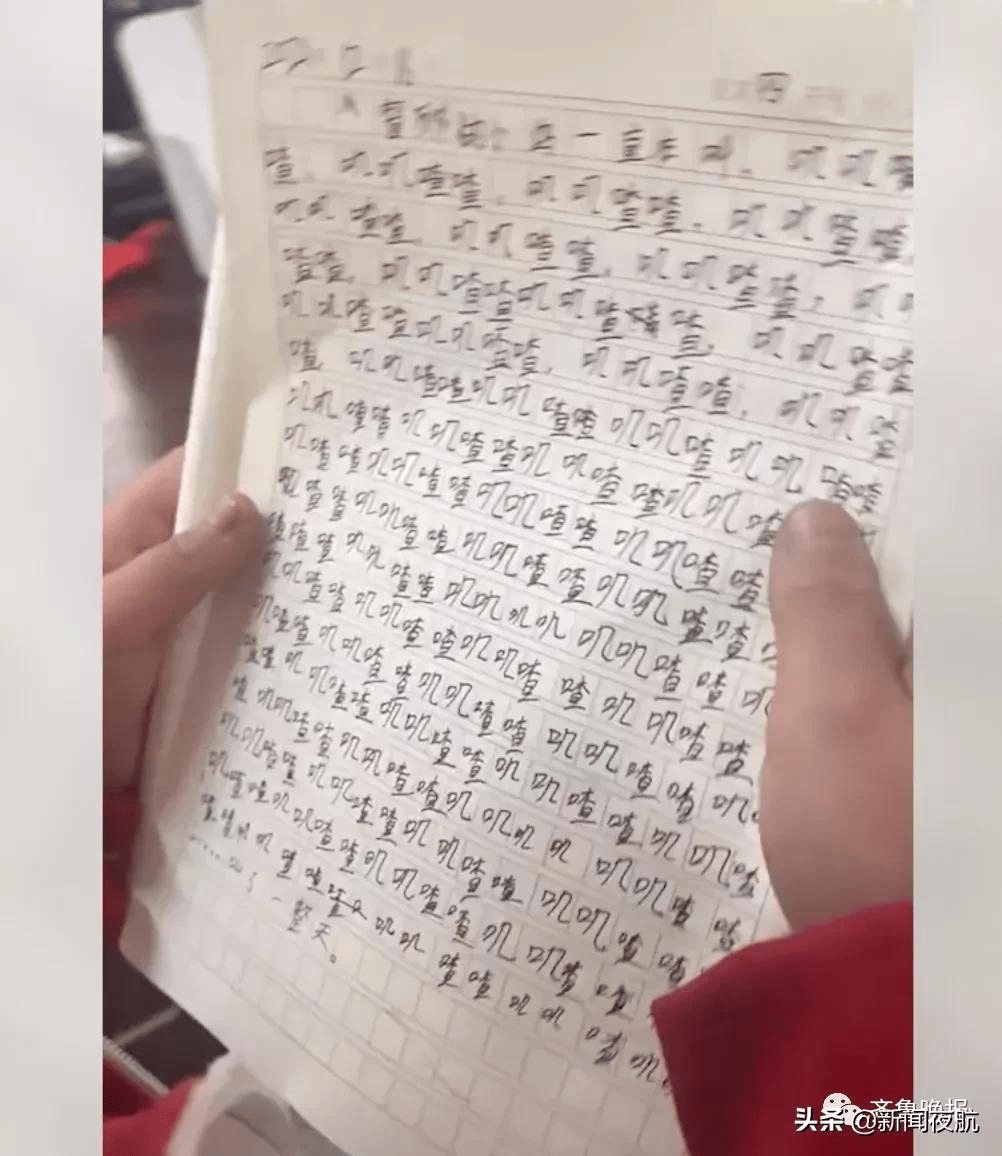 四
一直在叫，叽叽喳
喳，叽叽喳喳，叽叽喳喳，叽叽喳喳
叽叽喳喳，叽叽喳喳，叽叽喳喳，叽
喳喳，叽叽喳喳叽叽喳喳，叽叽喳喳
叽叽喳喳叽叽喳喳，叽叽喳喳，叽叽喳
喳，叽叽喳喳叽叽喳喳叽叽喳叽叽喳喳
叽叽喳喳叽叽喳喳叽叽喳喳叽叽喳
叽喳喳叽叽喳喳叽叽喳喳叽叽喳喳
叽喳喳叽叽喳喳叽叽喳喳叽叽喳喳
喳喳喳叽叽喳喳叽叽叽叽叽叽喳喳叽
叽叽喳喳叽叽喳喳叽叽喳喳叽叽喳喳
叽喳喳叽叽喳喳叽叽喳喳叽叽喳喳叽
喳喳叽叽喳喳叽叽喳喳叽叽喳喳叽叽喳
喳叽叽喳喳叽叽喳喳叽叽叽叽叽叽喳喳
叽叽喳喳叽叽喳喳叽叽喳喳叽叽喳喳
叽喳喳叽叽喳喳叽叽喳喳叽叽喳喳
喳喳叽叽喳喳喳叽叽喳喳叽叽喳叽
一整天。
齐鲁晚报
头条 @新闻夜航